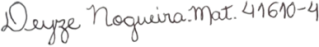 Deyze Nogueira. Mat. 41610-4